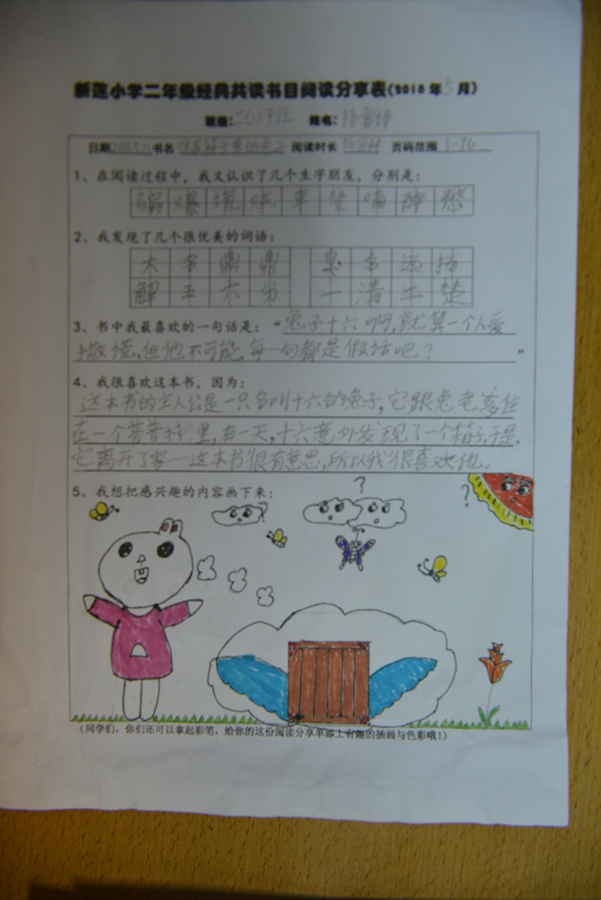 新莲小学二年级经典共读书目阅读分享表(2018年5月)
班级: 二(1)班 姓名:
日期 书名 阅读时长 页码范围
1、在阅读过程中,我又认识了几个生字朋友,分别是:
爆 谎
2、我发现了几个很优美的词语:
大名鼎鼎 臭名远扬
一清二楚
3、书中我最喜欢的一句话是:“兔子十六啊,就算一个人爱
撒谎,但他不可能每一句都是假话吧?”
4、我很喜欢这本书,因为:
这本书的主人公是一只名叫十六的兔子,它跟兔老爹住
在一个普普村里,有一天,十六意外发现了一个箱子,于是,
它离开了家……这本书很有意思,所以我很喜欢他。
5、我想把感兴趣的内容画下来:
? ?
(同学们,你们还可以拿起彩笔,给你的这份阅读分享单添上有趣的插画与色彩哦!)